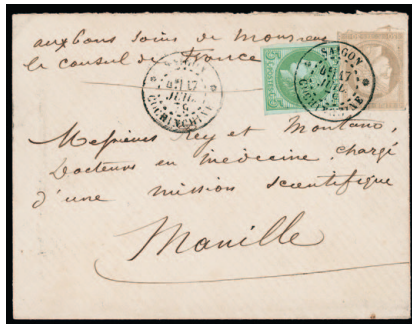 aux bons soins de Monsieur
le consul de France
SAIGON
17
JUIL.
COCHINCHINE
5
SAIGON
17
JUIL.
COCHINCHINE
Messieurs Rey et Montano,
Docteurs en médecine, chargé
d'une mission scientifique
Manille